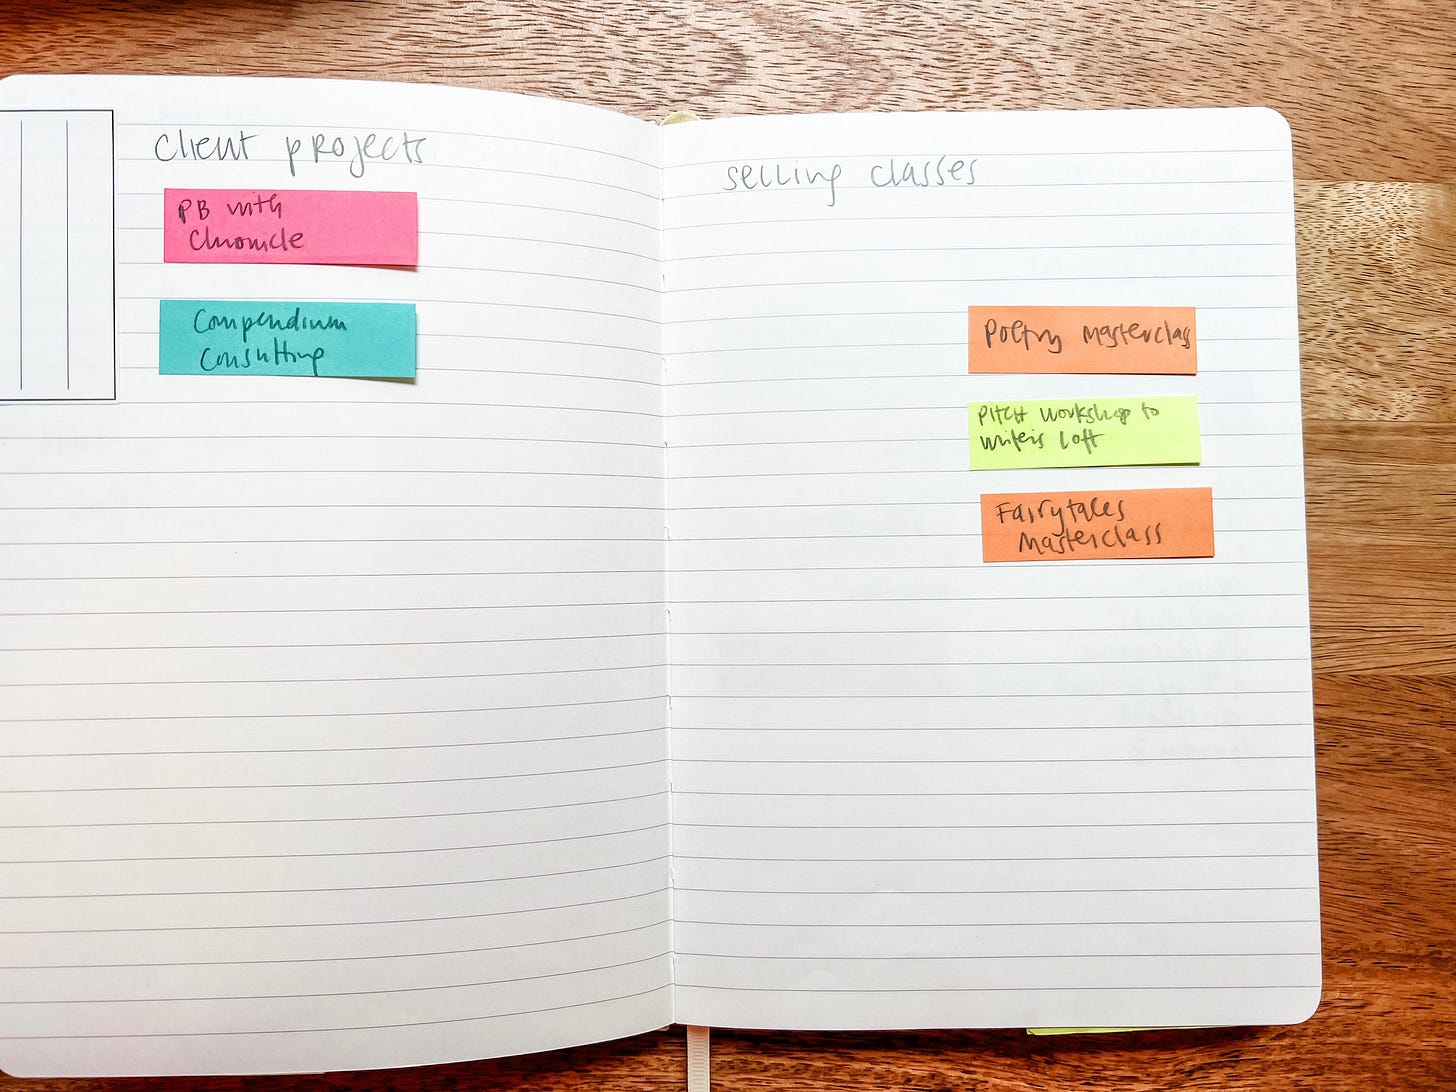 client projects
PB with
Chronicle
Compendium
Consulting
selling classes
Poetry Masterclass
Pitch workshop to
writers loft
Fairytales
Masterclass